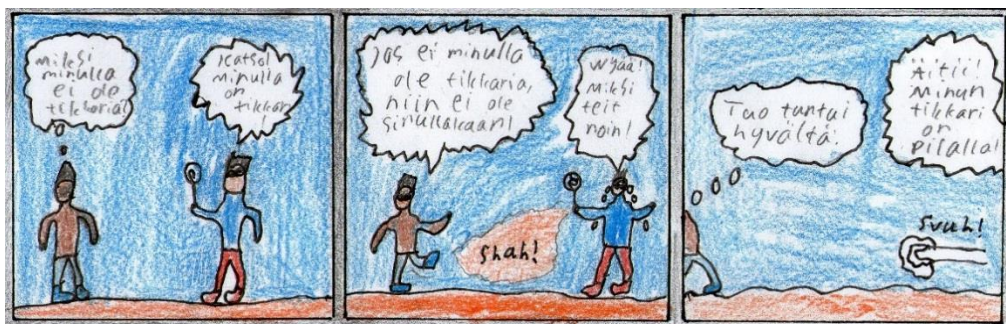 miksi
minulla
ei ole
tikkaria?
Katso!
minulla
on
tikkari
!
Jos ei minulla
ole tikkaria,
niin ei ole
sinullakaan!
Wyää!
Miksi
teit
noin!
Shah!
Tuo tuntui
hyvältä.
Äitii!
Minun
tikkari
on
pilalla!
Svuh!